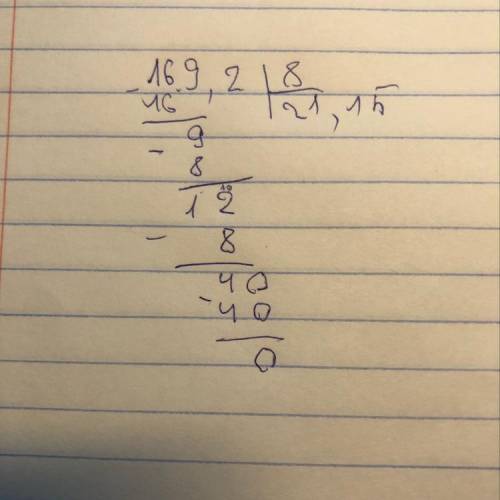 169,2 | 8
- 16 21,15
9
- 8
10
12
- 8
40
- 40
0